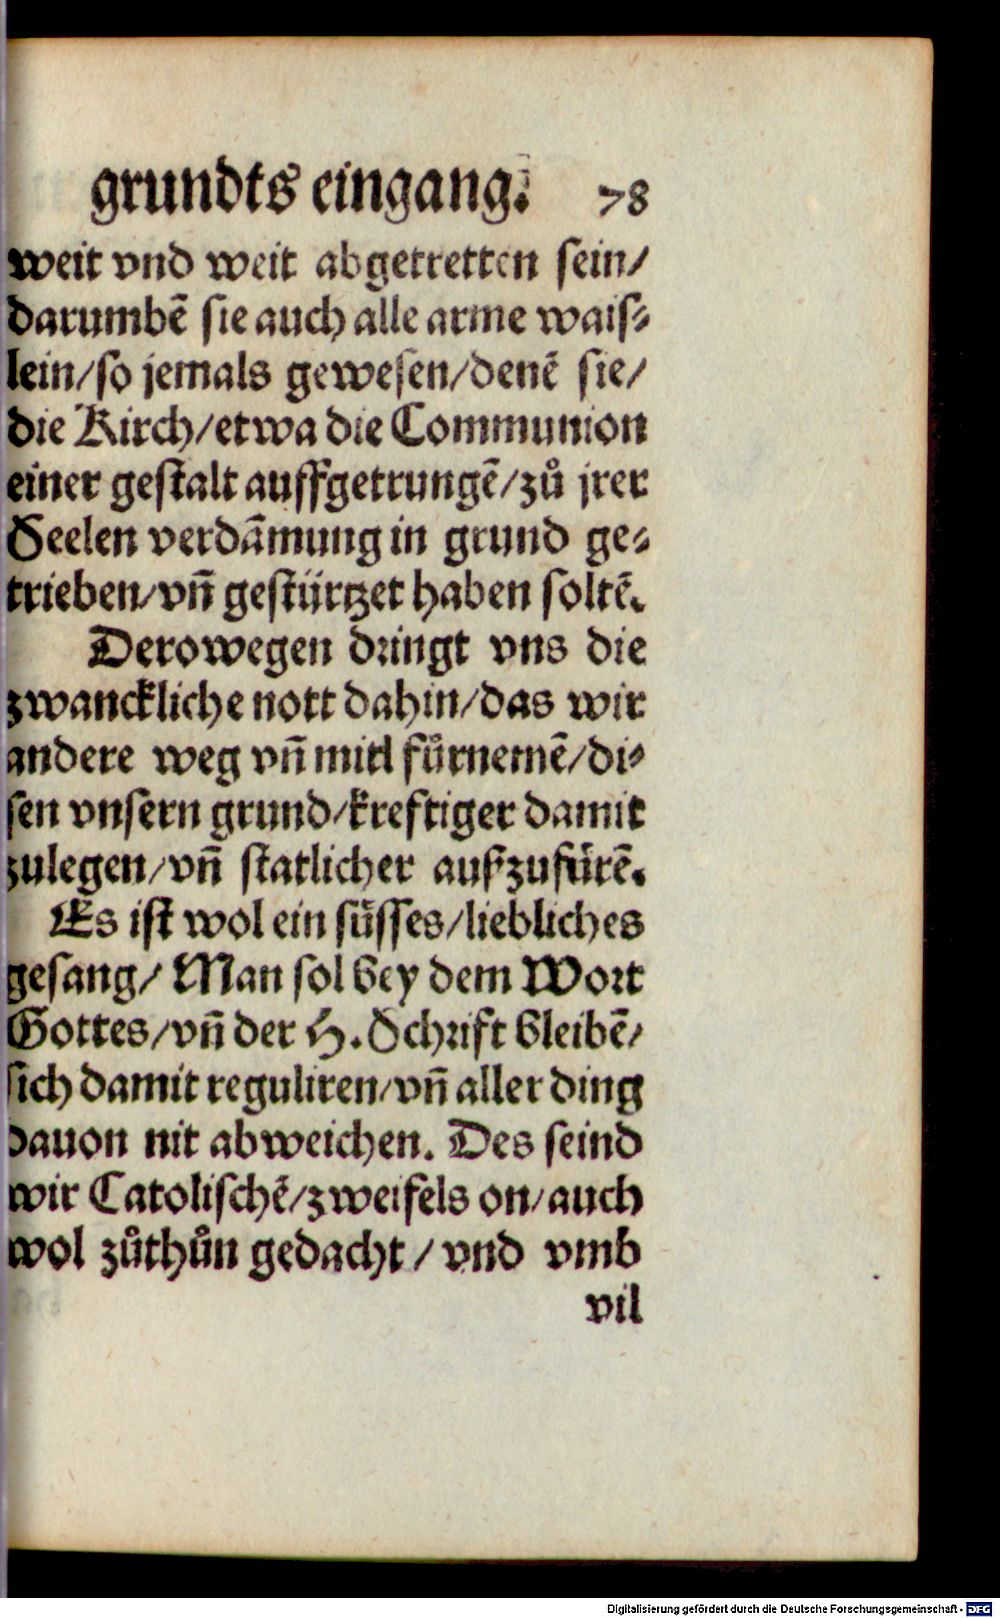 grundts eingang. 78
weit vnd weit abgetretten sein/
darumbẽ sie auch alle arme wais⸗
lein/so jemals gewesen/denẽ sie/
die Kirch/etwa die Communion
einer gestalt auffgetrungẽ/zů jrer
Seelen verdãmung in grund ge⸗
trieben/vñ gestürtzet haben soltẽ.
Derowegen dringt vns die
zwanckliche nott dahin/das wir
andere weg vñ mitl fürnemẽ/di⸗
sen vnsern grund/kreftiger damit
zulegen/vñ statlicher außzufürẽ.
Es ist wol ein süsses/liebliches
gesang/ Man sol bey dem Wort
Gottes/vñ der H. Schrift bleibẽ/
sich damit reguliren/vñ aller ding
dauon nit abweichen. Des seind
wir Catolischẽ/zweifels on/auch
wol zůthůn gedacht/ vnd vmb
vil
Digitalisierung gefördert durch die Deutsche Forschungsgemeinschaft - DFG